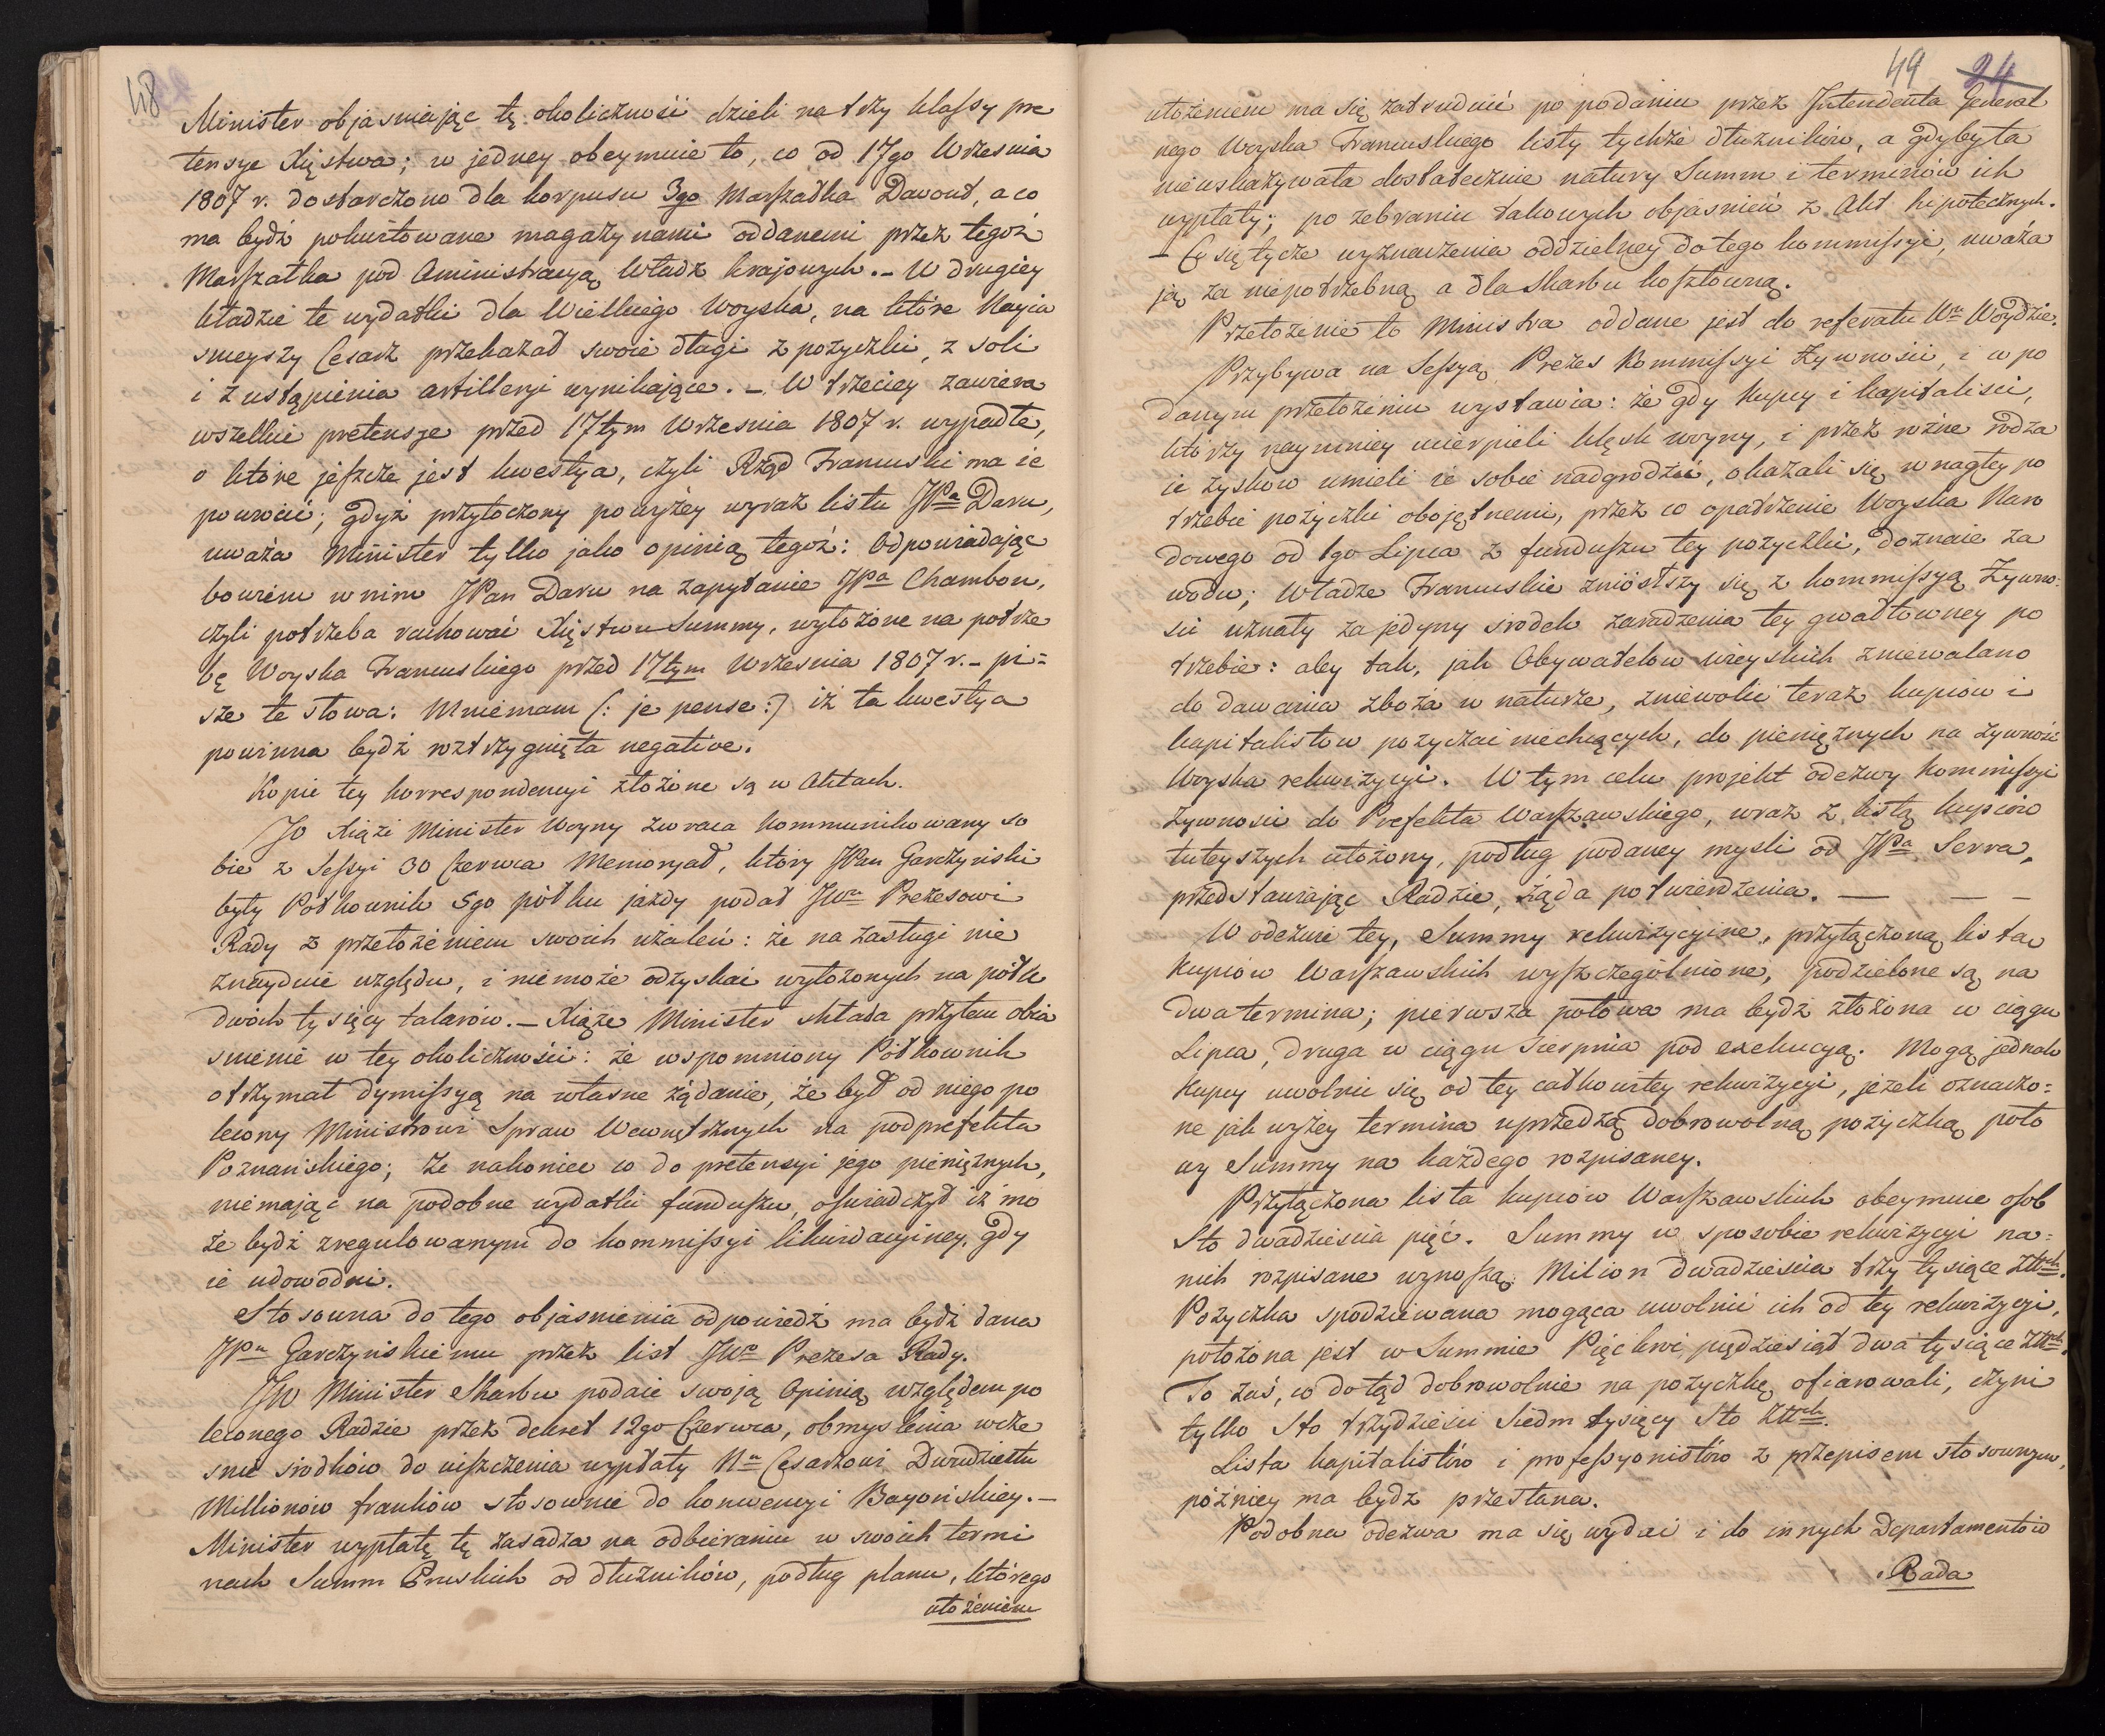 48
Minister objasniając tę okoliczność dzieli na trzy klassy pre
tensye Xięstwa; w jedney obeymuie to, co od 17go Wrzesnia
1807 r. dostarczono dla korpusu 3go Marszałka Davout, a co
ma bydź pokwitowane magazynami oddanemi przez tegoż
Marszałka pod Aministracyą Władz krajowych. — W drugiey
kładzie te wydatki dla Wielkiego Woyska, na które Nayia
snieyszy Cesarz przekazał swoie długi z pożyczki, z soli
i z ustąpienia artilleryi wynikające. — W trzeciey zawiera
wszelkie pretensye przed 17tym Wrzesnia 1807 r. wypadłe,
o które jeszcze jest kwestya, czyli Rząd Francuski ma ie
powrócić; gdyż przytoczony powyżey wyraz listu JPa Daru,
uważa Minister tylko jako opinią tegoż: Odpowiadając
bowiem w nim JPan Daru na zapytanie JPa Chambon,
czyli potrzeba rachować Xięstwu Summy, wyłożone na potrze
bę Woyska Francuskiego przed 17tym Wrzesnia 1807 r. — pi=
sze te słowa: Mniemam (: je pense :) iż ta kwestya
powinna bydź roztrzygnięta negative.
Kopie tey korrespondencyi złożone są w Aktach.
JO Xiąże Minister Woyny zwraca kommunikowany so
bie z Sessyi 30 Czerwca Memoryał, który JPan Garczyński
były Pułkownik 5go półku jazdy podał JWu Prezesowi
Rady z przełożeniem swoich użaleń: że na zasługi nie
znayduie względu, i nie może odzyskać wyłożonych na półk
dwóch tysięcy talarów. — Xiąże Minister składa przytem obia
snienie w tey okoliczności: że wspomniony Półkownik
otrzymał dymissyą na własne żądanie, że był od niego po
lecony Ministrowi Spraw Wewnętrznych na podprefekta
Poznańskiego; że nakoniec co do pretensyi jego pieniężnych,
nie mając na podobne wydatki funduszu, oświadczył iż mo
że bydź zregulowanym do kommissyi likwidacyiney, gdy
ie udowodni.
Stosowna do tego objasnienia odpowiedź ma bydź dana
JPu Garczyńskiemu przez list JWo Prezesa Rady.
JW Minister Skarbu podaie swoią Opinią względem po
leconego Radzie przez dekret 12go Czerwca, obmyslenia wcze
snie srodków do uiszczenia wypłaty Nu Cesarzowi Dwudziestu
Millionów franków stosownie do konwencyi Bayońskiey. —
Minister wypłatę tę zasadza na odbieraniu w swoich termi
nach Summ Pruskich od dłużników, podług planu, którego
ułożeniem
49 24
ułożeniem ma się zatrudnić po podaniu przez Intendenta General
nego Woyska Francuskiego listy tychże dłużników, a gdyby ta
nie uskazywała dostatecznie natury Summ i terminów ich
wypłaty; po zebraniu takowych objasnień z Akt hipotecznych.
— Co się tycze wyznaczenia oddzielney do tego kommissyi, uważa
ją za niepotrzebną a dla Skarbu kosztowną.
Przełożenie to Ministra oddane jest do referatu Wu Woydzie.
Przybywa na Sessyą Prezes Kommissyi Żywności, i w po
danym przełożeniu wystawia: że gdy kupcy i kapitaliści,
którzy naymniey ucierpieli klęsk woyny, i przez rożne rodza
ie zysków umieli ie sobie nadgrodzić, okazali się w nagłey po
trzebie pożyczki obojętnemi, przez co opatrzenie Woyska Naro
dowego od 1go Lipca z funduszu tey pożyczki, doznaie za
wodu; Władze Francuskie zniósłszy się z kommissyą Żywno=
ści uznały za jedyny srodek zaradzenia tey gwałtowney po
trzebie: aby tak, jak Obywatelow wieyskich zniewalano
do dawania zboża w naturze, zniewolić teraz kupców i
kapitalistow pożyczać niechcących, do pieniężnych na żywność
Woyska rekwizycyi. W tym celu projekt odezwy Kommissyi
Żywności do Prefekta Warszawskiego, wraz z listą kupców
tuteyszych ułożony, podług podaney mysli od JPa Serra,
przedstawiając Radzie, żąda potwierdzenia. — — —
W odezwie tey, Summy rekwizycyine, przyłączoną listą
Kupców Warszawskich wyszczególnione, podzielone są na
dwa termina; pierwsza połowa ma bydź złożona w ciągu
Lipca, druga w ciągu Sierpnia pod exekucyą. Mogą jednak
kupcy uwolnić się od tey całkowitey rekwizycyi, jeżeli oznaczo=
ne jak wyżey termina uprzedzą dobrowolną pożyczką poło
wy Summy na każdego rozpisaney.
Przyłączona lista kupców Warszawskich obeymuie osob
Sto dwadziescia pięć. Summy w sposobie rekwizycyi na=
nich rozpisane wynoszą Milion dwadziescia trzy tysiące Złtych.
Pożyczka spodziewana mogąca uwolnić ich od tey rekwizycyi,
położona jest w Summie Pięćkroć pięćdziesiąt dwa tysiące Złtch.
To zaś, co dotąd dobrowolnie na pożyczkę ofiarowali, czyni
tylko Sto trzydzieści Siedm tysięcy Sto Złtch.
Lista kapitalistów i professyonistów z przepisem stosownym,
póżniey ma bydź przesłana.
Podobna odezwa ma się wydać i do innych Departamentów
Rada